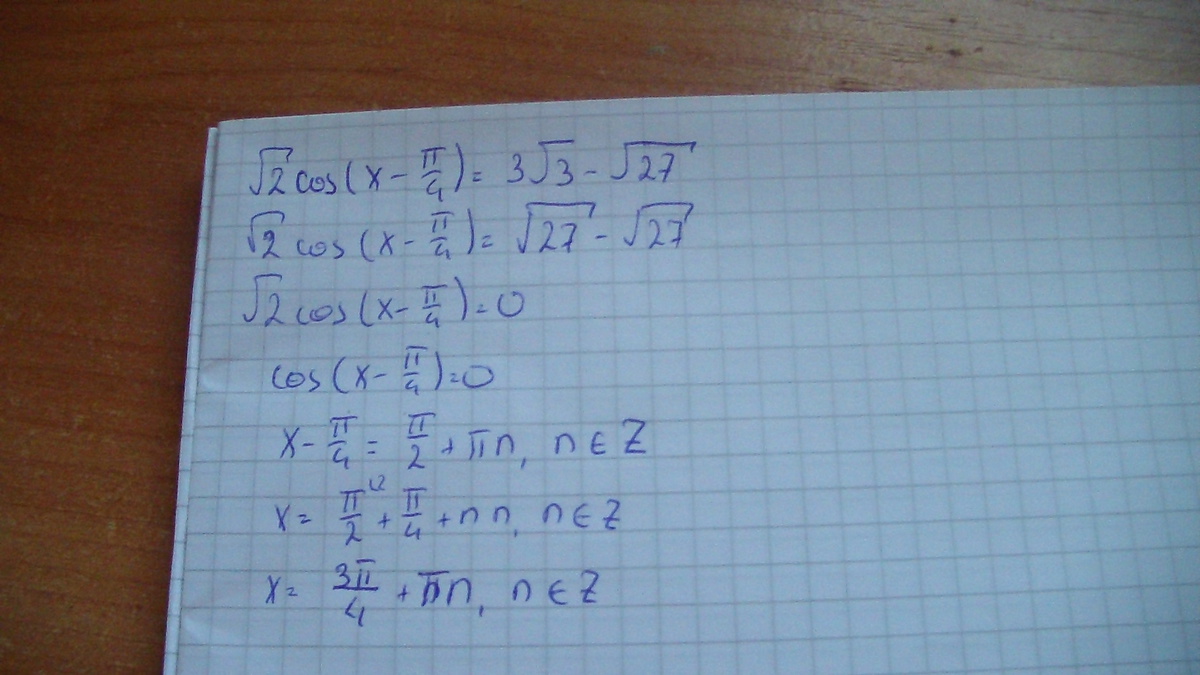 √2 cos(x - π/4) = 3√3 - √27
√2 cos(x - π/4) = √27 - √27
√2 cos(x - π/4) = 0
cos(x - π/4) = 0
x - π/4 = π/2 + πn, n ∈ Z
x = π/2 ⁽² + π/4 + πn, n ∈ Z
x = 3π/4 + πn, n ∈ Z